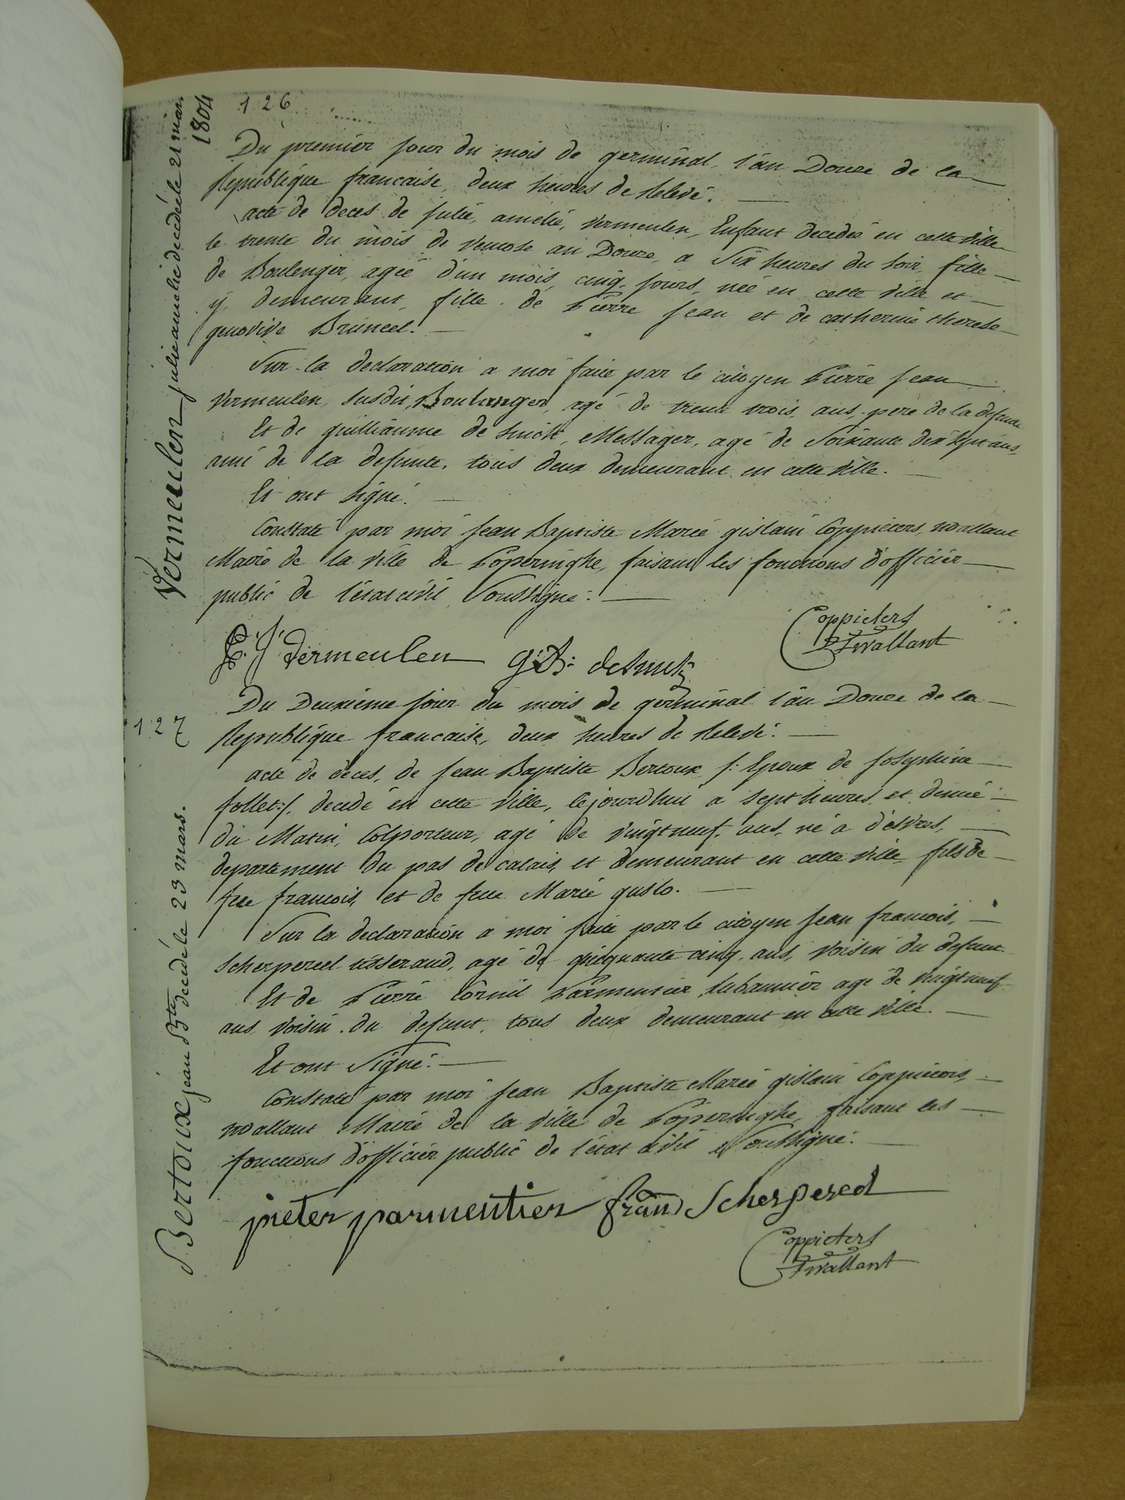 Vermeulen julie amelie decedée le 21 mars
1804
126
Du premier jour du mois de germinal l'an Douze de la
Republique francaise, deux heures de Relevé.
acte de deces de julie, amelie, vermeulen, Enfant decedée en cette ville
le trente du mois de ventose an Douze, a Six heures du soir, fille
de Boulenger, agée d'un mois, cinq jours, née en cette ville et
y demeurant, fille de Pierre jean et de catherine therese
genovive Bruneel.
Sur la declaration a moi faite par le citoyen Pierre jean
vermeulen, susdit, Boulanger, agé de trente trois ans, pere de la defunte
Et de guilliaume de Smidt, Messager, agé de Soixante dix sept ans,
ami de la defunte, tous deux demeurant en cette ville.
Et ont signé.
Constaté par moi jean Baptiste Marie gislain Coppieters wallant
Maire de la ville de Poperinghe, faisant les fonctions d'officier
public de l'etat civil Soussigné:
P: J: Vermeulen
Coppieters
Twallant
127
Du Deuxième jour du mois de germinal l'an Douze de la
Republique francaise, deux heures de Relevé:
acte de deces, de jean Baptiste Bertoux /: Epoux de josephine
follet:/ decedé en cette ville, cejourd'hui a sept heures et demie
du Matin, Colporteur, agé de vingtneuf ans, né a desvres,
departement du pas de calais, et demeurant en cette ville, fils de
feu francois, et de feue Marie gusto.
Sur la declaration a moi faite par le citoyen jean francois,
Scherpereel tisserand, agé de cinquante cinq ans, voisin du defunt
Et de Pierre Cornil Parmentier, agé de vingtneuf
ans, voisin du defunt, tous deux demeurant en cette ville.
Et ont Signé:
Constaté par moi jean Baptiste Marie gislain Coppieters,
wallant Maire de la ville de Poperinghe, faisant les
fonctions d'officier public de l'etat civil Soussigné:
Bertoux jean Bte decedé le 23 mars.
pieter parmentier fran Scherpereel
Coppieters
Twallant